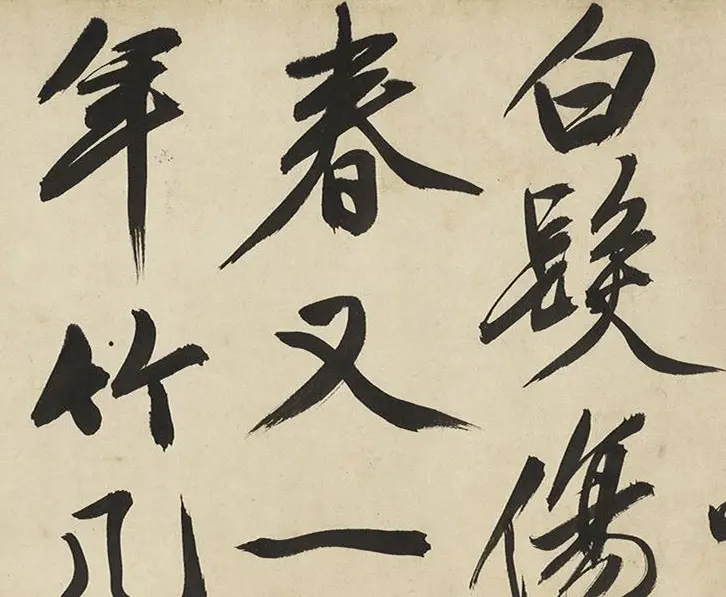 白髮傷
春又一
年竹